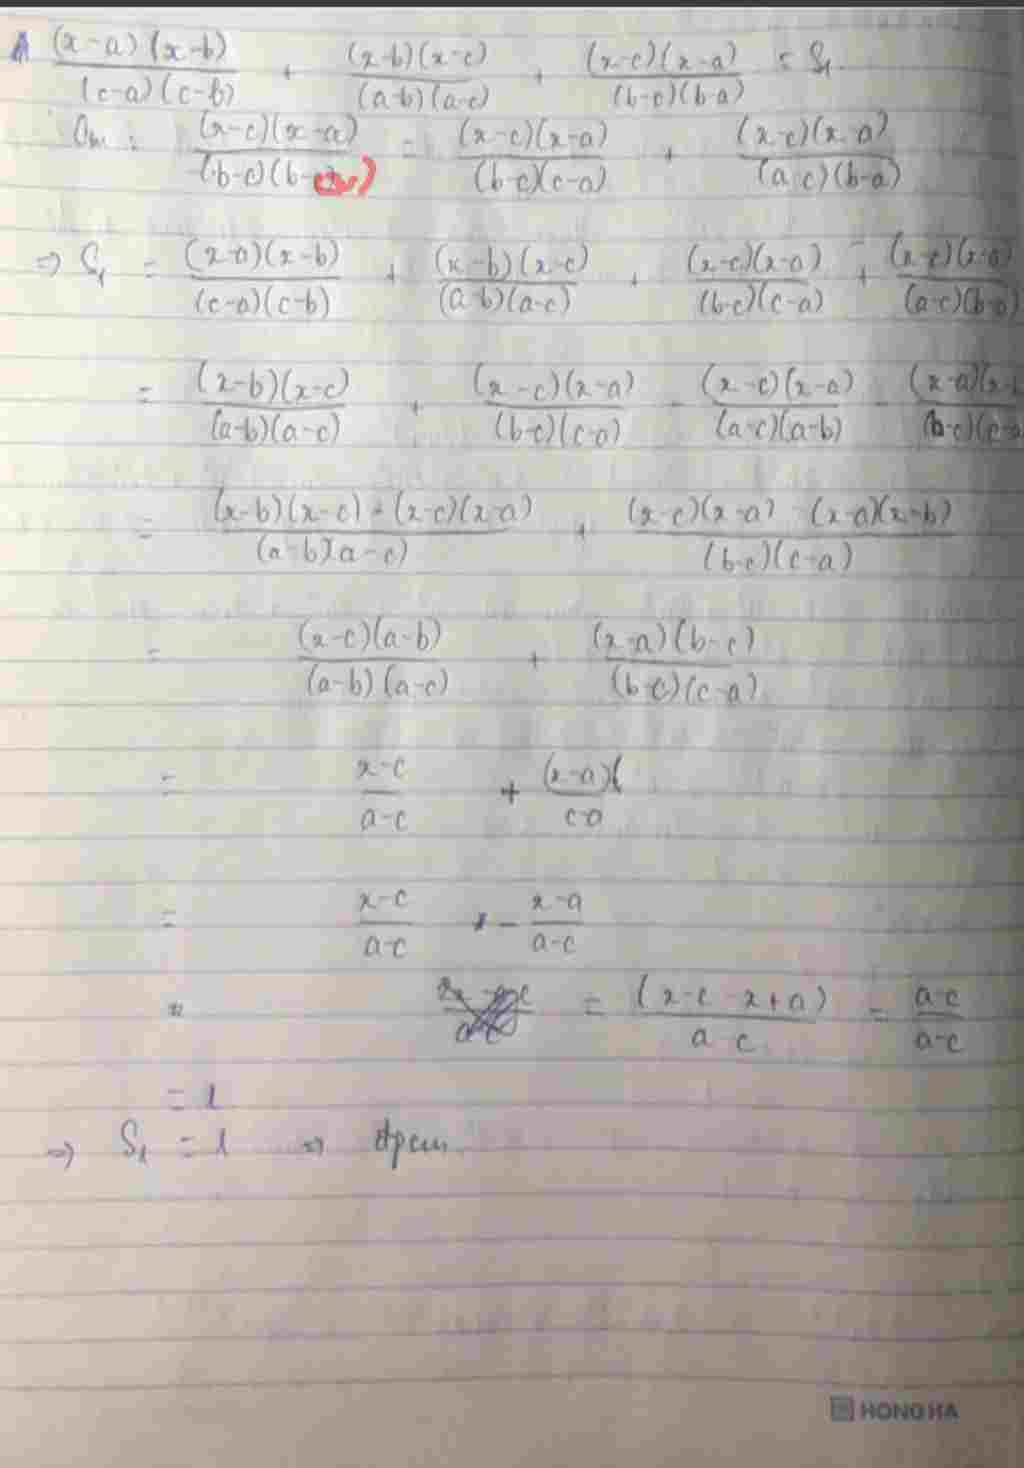 (x-a)(x-b)/(c-a)(c-b) + (x-b)(x-c)/(a-b)(a-c) + (x-c)(x-a)/(b-c)(b-a) = S₁.
(x-c)(x-a)/(b-c)(b- = (x-c)(x-a)/(b-c)(c-a) + (x-c)(x-a)/(a-c)(b-a)
=> S₁ = (x-a)(x-b)/(c-a)(c-b) + (x-b)(x-c)/(a-b)(a-c) + (x-c)(x-a)/(b-c)(c-a) + (x-c)(x-a)/(a-c)(b-a)
= (x-b)(x-c)/(a-b)(a-c) + (x-c)(x-a)/(b-c)(c-a) - (x-c)(x-a)/(a-c)(a-b) - (x-a)(x-b/(b-c)(c-a
= (x-b)(x-c) - (x-c)(x-a)/(a-b)(a-c) + (x-c)(x-a) - (x-a)(x-b)/(b-c)(c-a)
= (x-c)(a-b)/(a-b)(a-c) + (x-a)(b-c)/(b-c)(c-a)
= x-c/a-c + (x-a)(/c-a
= x-c/a-c - x-a/a-c
= = (x-c-x+a)/a-c = a-c/a-c
= 1
=> S₁ = 1 => đpcm.
HONG HA